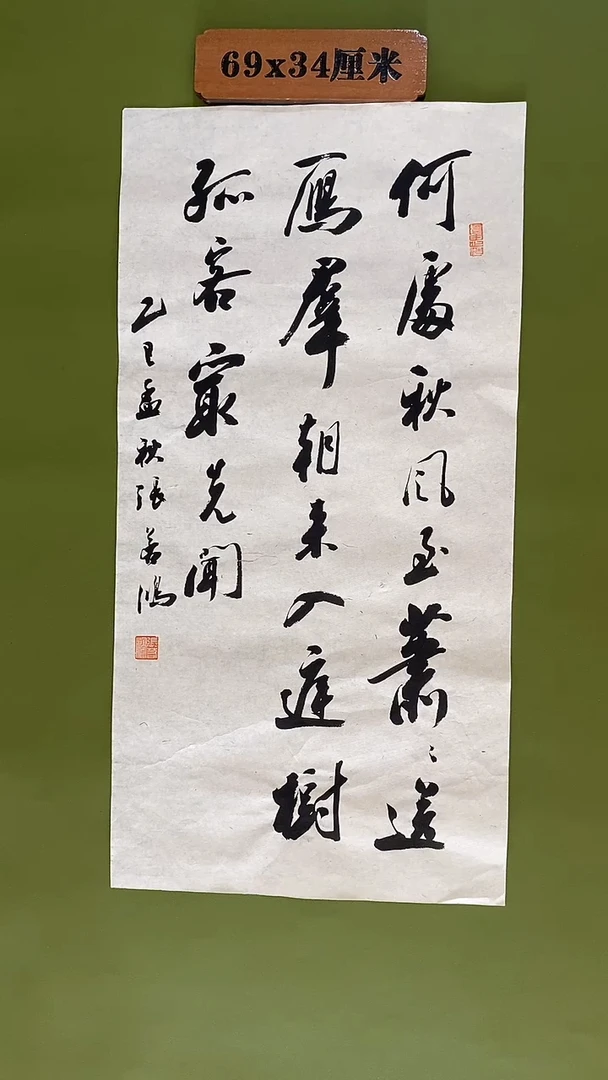 69x34厘米
何處秋風至蕭々送
鴈羣朝来入庭樹
孤客㝡先聞
乙巳孟秋張鴻